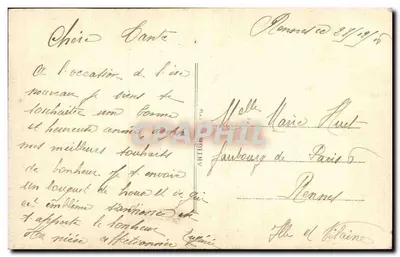 Rennes le 28/12/
Chère Tante
A l'occasion de l'an
nouveau je viens te
souhaiter une bonne
et heureuse année,
mes meilleurs souhaits
de bonheur je t'envoie
un bouquet de houx et de gui
cet emblème
t'apporte le bonheur
Ta nièce
Melle Marie Huet
faubourg de Paris 6
Rennes
Ille et Vilaine
CPARAMA